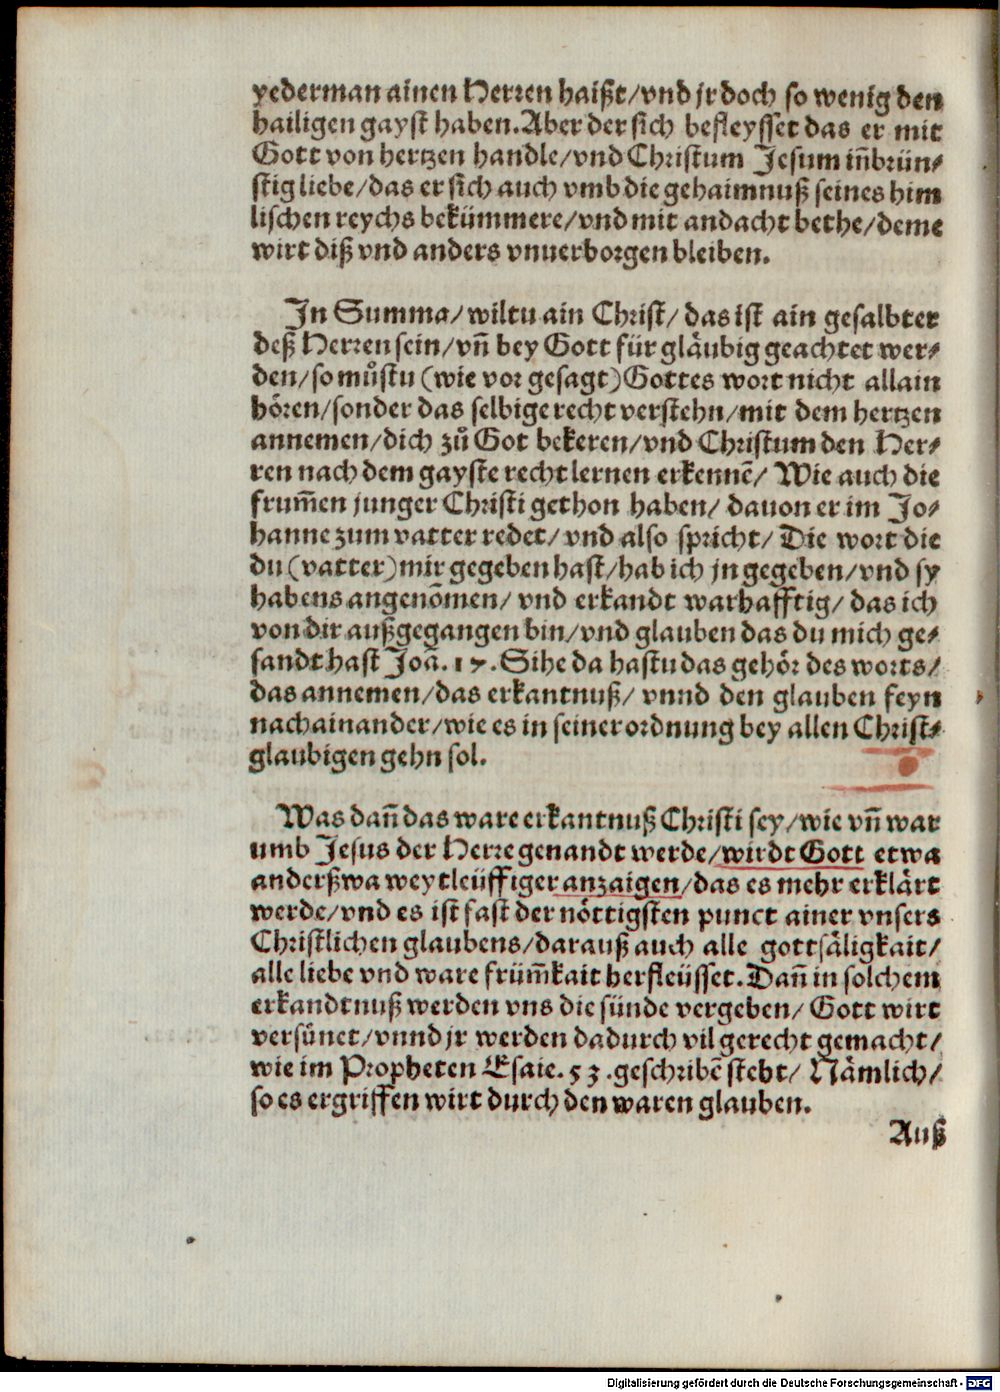 yederman ainen Herren haißt/vnd jr doch so wenig den
hailigen gayst haben. Aber der sich befleysset das er mit
Gott von hertzen handle/vnd Christum Jesum iñbrün-
stig liebe/das er sich auch vmb die gehaimnuß seines him
lischen reychs bekümmere/vnd mit andacht bethe/deme
wirt diß vnd anders vnuerborgen bleiben.
In Summa/wiltu ain Christ/das ist ain gesalbter
deß Herren sein/vñ bey Gott für gläubig geachtet wer-
den/so můstu (wie vor gesagt) Gottes wort nicht allain
hören/sonder das selbige recht verstehn/mit dem hertzen
annemen/dich zů Got bekeren/vnd Christum den Her-
ren nach dem gayste recht lernen erkennẽ/ Wie auch die
frum̃en junger Christi gethon haben/ dauon er im Jo-
hanne zum vatter redet/vnd also spricht/ Die wort die
du (vatter) mir gegeben hast/hab ich jn gegeben/vnd sy
habens angenõmen/ vnd erkandt warhafftig/ das ich
von dir außgegangen bin/vnd glauben das du mich ge-
sandt hast Joã. 17. Sihe da hastu das gehör des worts/
das annemen/das erkantnuß/ vnnd den glauben feyn
nachainander/wie es in seiner ordnung bey allen Christ-
glaubigen gehn sol.
Was dañ das ware erkantnuß Christi sey/wie vñ war
umb Jesus der Herre genandt werde/wirdt Gott etwa
anderßwa weytleüffiger anzaigen/das es mehr erklärt
werde/vnd es ist fast der nöttigsten punct ainer vnsers
Christlichen glaubens/darauß auch alle gottsäligkait/
alle liebe vnd ware früm̃kait herfleüsset. Dañ in solchem
erkandtnuß werden vns die sünde vergeben/ Gott wirt
versünet/vnnd jr werden dadurch vil gerecht gemacht/
wie im Propheten Esaie. 53. geschribẽ steht/ Nämlich/
so es ergriffen wirt durch den waren glauben.
Auß
Digitalisierung gefördert durch die Deutsche Forschungsgemeinschaft - DFG